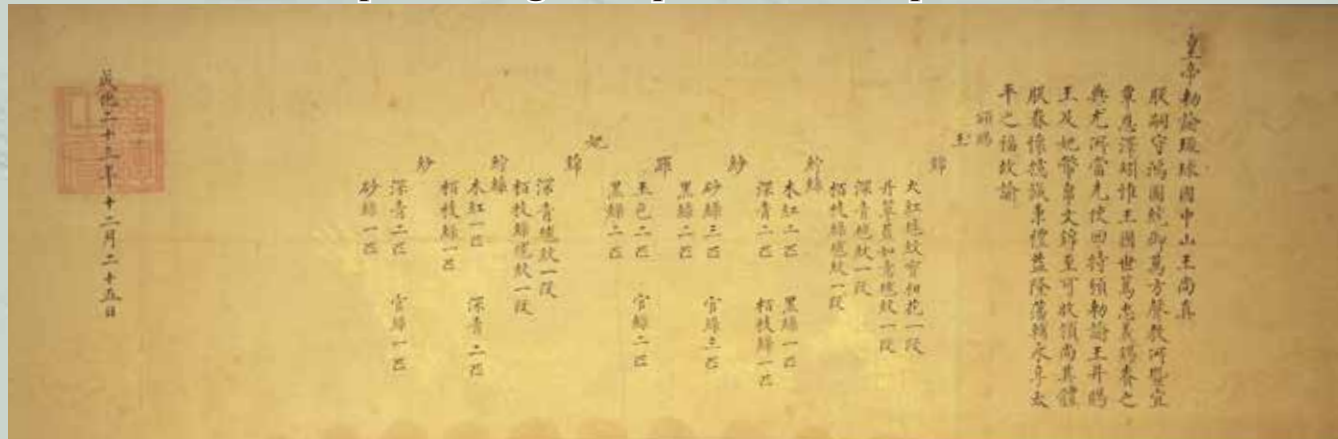 皇帝勅諭琉球國中山王尚真
朕嗣守鴻圖統御萬方聲教所曁宜
覃恩澤矧惟王國世篤忠義錫賚之
典尤所當先使回特頒勅諭王并賜
王及妃幣帛文錦至可收領尚其體
朕眷懷 誠秉禮益隆藩輔永享太
平之福故諭
頒賜
王
錦
大紅毬紋寳相花一段
如意毬紋一段
深青毬紋一段
栢枝綠毬紋一段
紵絲
木紅二匹 黑綠一匹
深青二匹 栢枝綠一匹
紗
砂綠三匹 官綠三匹
黑綠二匹
羅
玉色二匹 官綠二匹
黑綠二匹
妃
錦
深青毬紋一段
栢枝綠毬紋一段
紵絲
木紅一匹 深青二匹
栢枝綠一匹
紗
深青二匹 官綠一匹
砂綠一匹
成化二十三年十二月二十五日